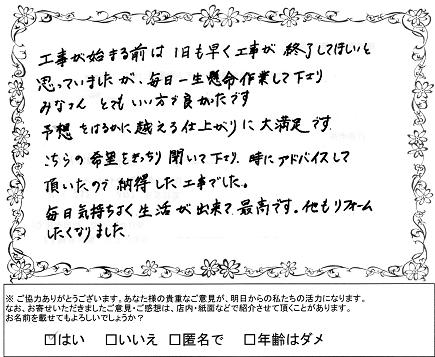 工事が始まる前は1日も早く工事が終了してほしいと
思っていましたが、毎日一生懸命作業して下さり
みなさん とてもいい方で良かったです
予想をはるかに越える仕上がりに大満足です
こちらの希望をきっちり聞いて下さり、時にアドバイスして
頂いたので納得した工事でした。
毎日気持ちよく生活が出来て最高です。他もリフォーム
したくなりました
※ご協力ありがとうございます。あなた様の貴重なご意見が、明日からの私たちの活力になります。
なお、お寄せいただきましたご意見・ご感想は、店内・紙面などで紹介させて頂くことがあります。
お名前を載せてもよろしいでしょうか?
□はい □いいえ □匿名で □年齢はダメ